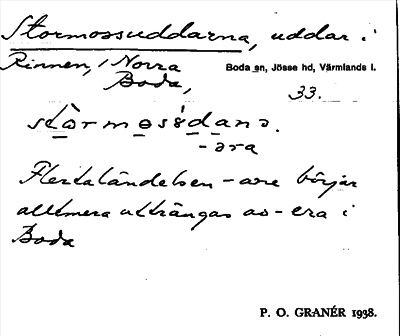 Stormossuddarna, uddar i
Rinnen, i Norra
Boda,
Boda sn, Jösse hd, Värmlands l.
33.
stòrməsúdanə.
-əra
Flertaländelsen -are börjar
alltmera utträngas av -era i
Boda
P. O. GRANÉR 1938.